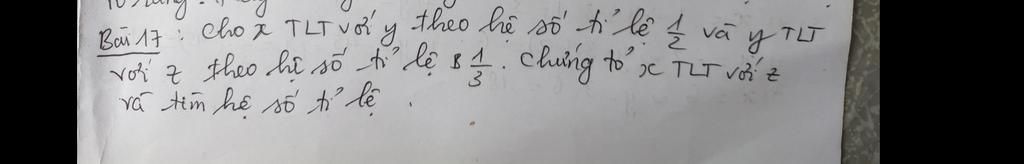 Bài 17: Cho x TLT với y theo hệ số tỉ lệ 1/2 và y TLT
với z theo hệ số tỉ lệ 1/3. Chứng tỏ x TLT với z
và tìm hệ số tỉ lệ.